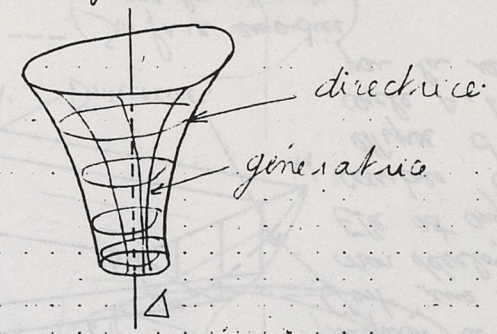 directrice
génératrice
Δ